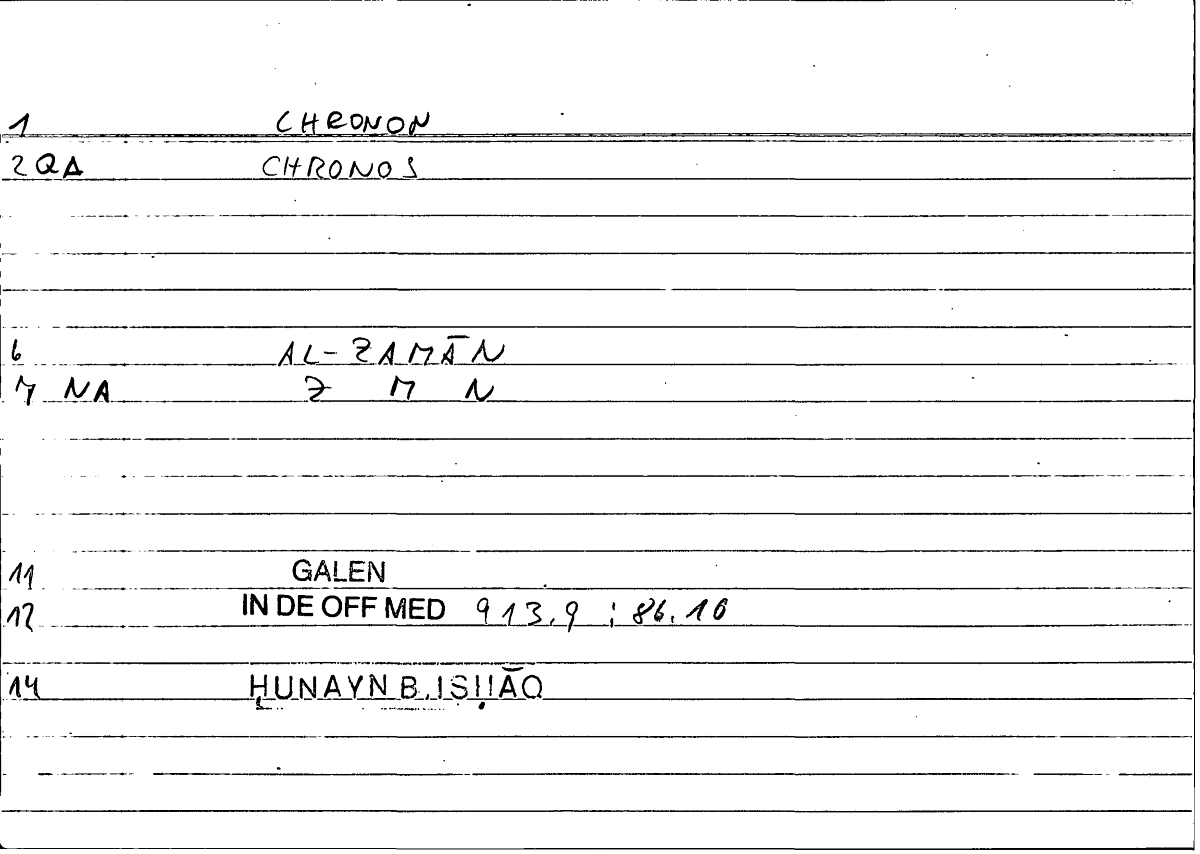 1 CHRONON
2 QA CHRONOS
6 AL-ZAMĀN
7 NA Z M N
11 GALEN
12 IN DE OFF MED 913.9 ; 86.16
14 ḤUNAYN B. ISḤĀQ